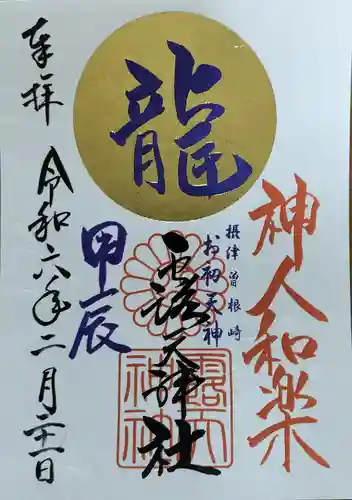 神人和楽
摂津曽根崎
お初天神
龍
露天神社
露天神社
甲辰
奉拝
令和六年二月二十一日